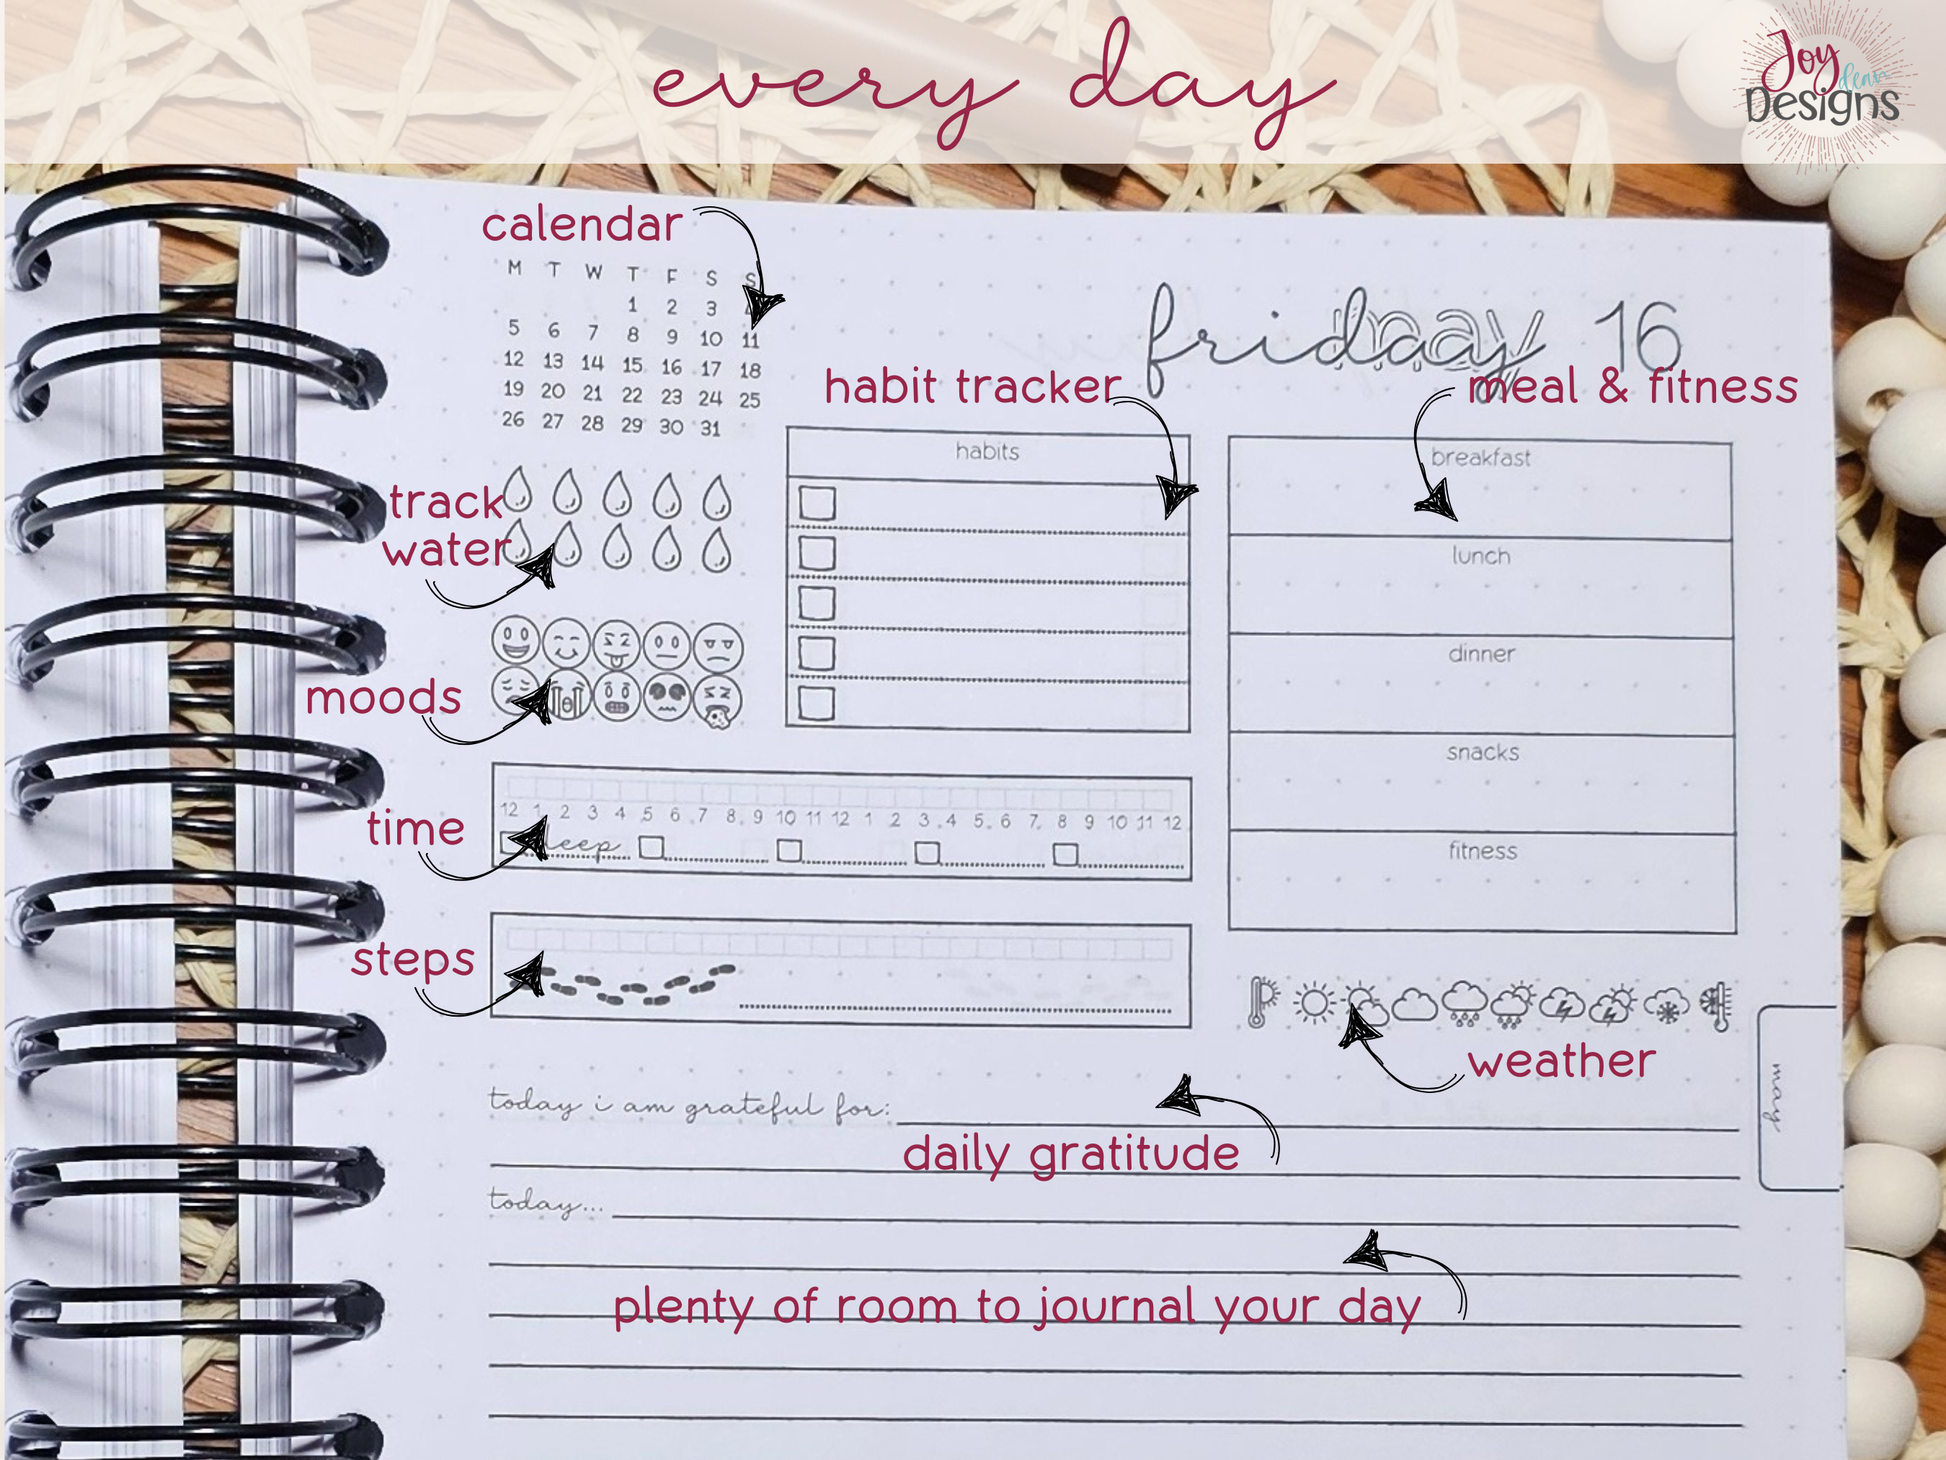 every day
Joy
dean
Designs
calendar
M T W T F S S
1 2 3
5 6 7 8 9 10 11
12 13 14 15 16 17 18
19 20 21 22 23 24 25
26 27 28 29 30 31
friday 16
may
habit tracker
meal & fitness
habits
breakfast
lunch
dinner
snacks
fitness
track
water
moods
time
12 1 2 3 4 5 6 7 8 9 10 11 12 1 2 3 4 5 6 7 8 9 10 11 12
sleep
steps
weather
may
today i am grateful for:
daily gratitude
today...
plenty of room to journal your day